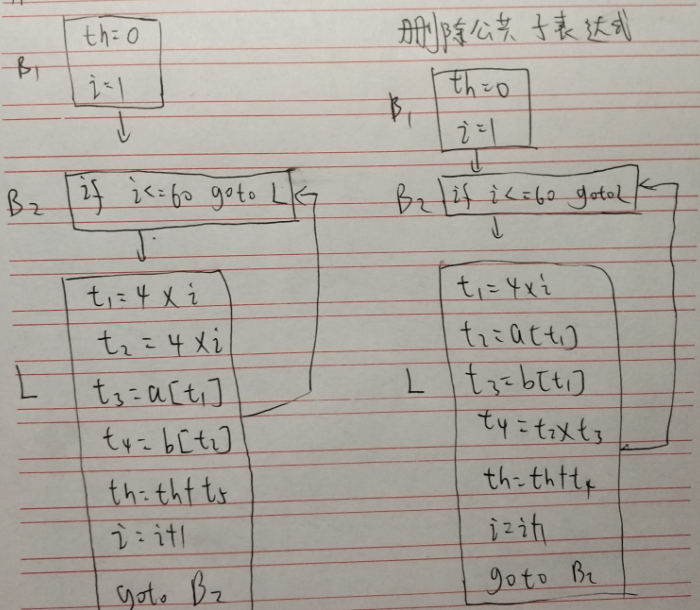 th=0
B₁
i=1
B₂
if i<=60 goto L
L
t₁=4×i
t₂=4×i
t₃=a[t₁]
t₄=b[t₂]
th=th+t₅
i=i+1
goto B₂
删除公共子表达式
th=0
B₁
i=1
B₂
if i<=60 goto L
L
t₁=4×i
t₂=a[t₁]
t₃=b[t₁]
t₄=t₂×t₃
th=th+t₄
i=i+1
goto B₂